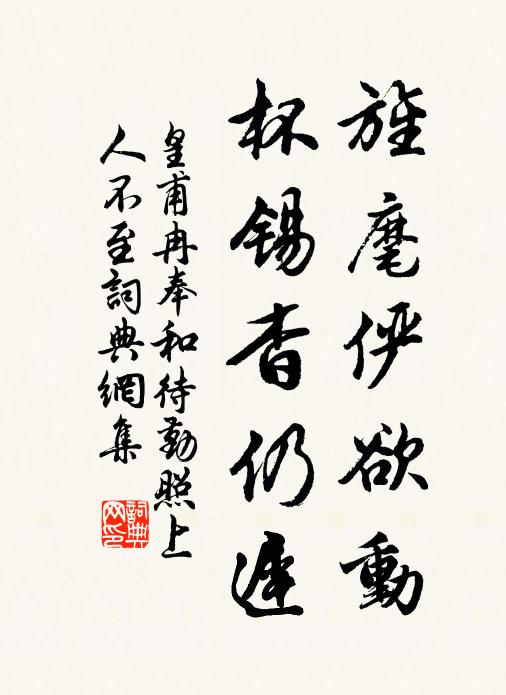 旌麾俨欲動
杯錫杳仍遲
皇甫冉奉和待勤照上
人不至詞典網集
詞典
网印